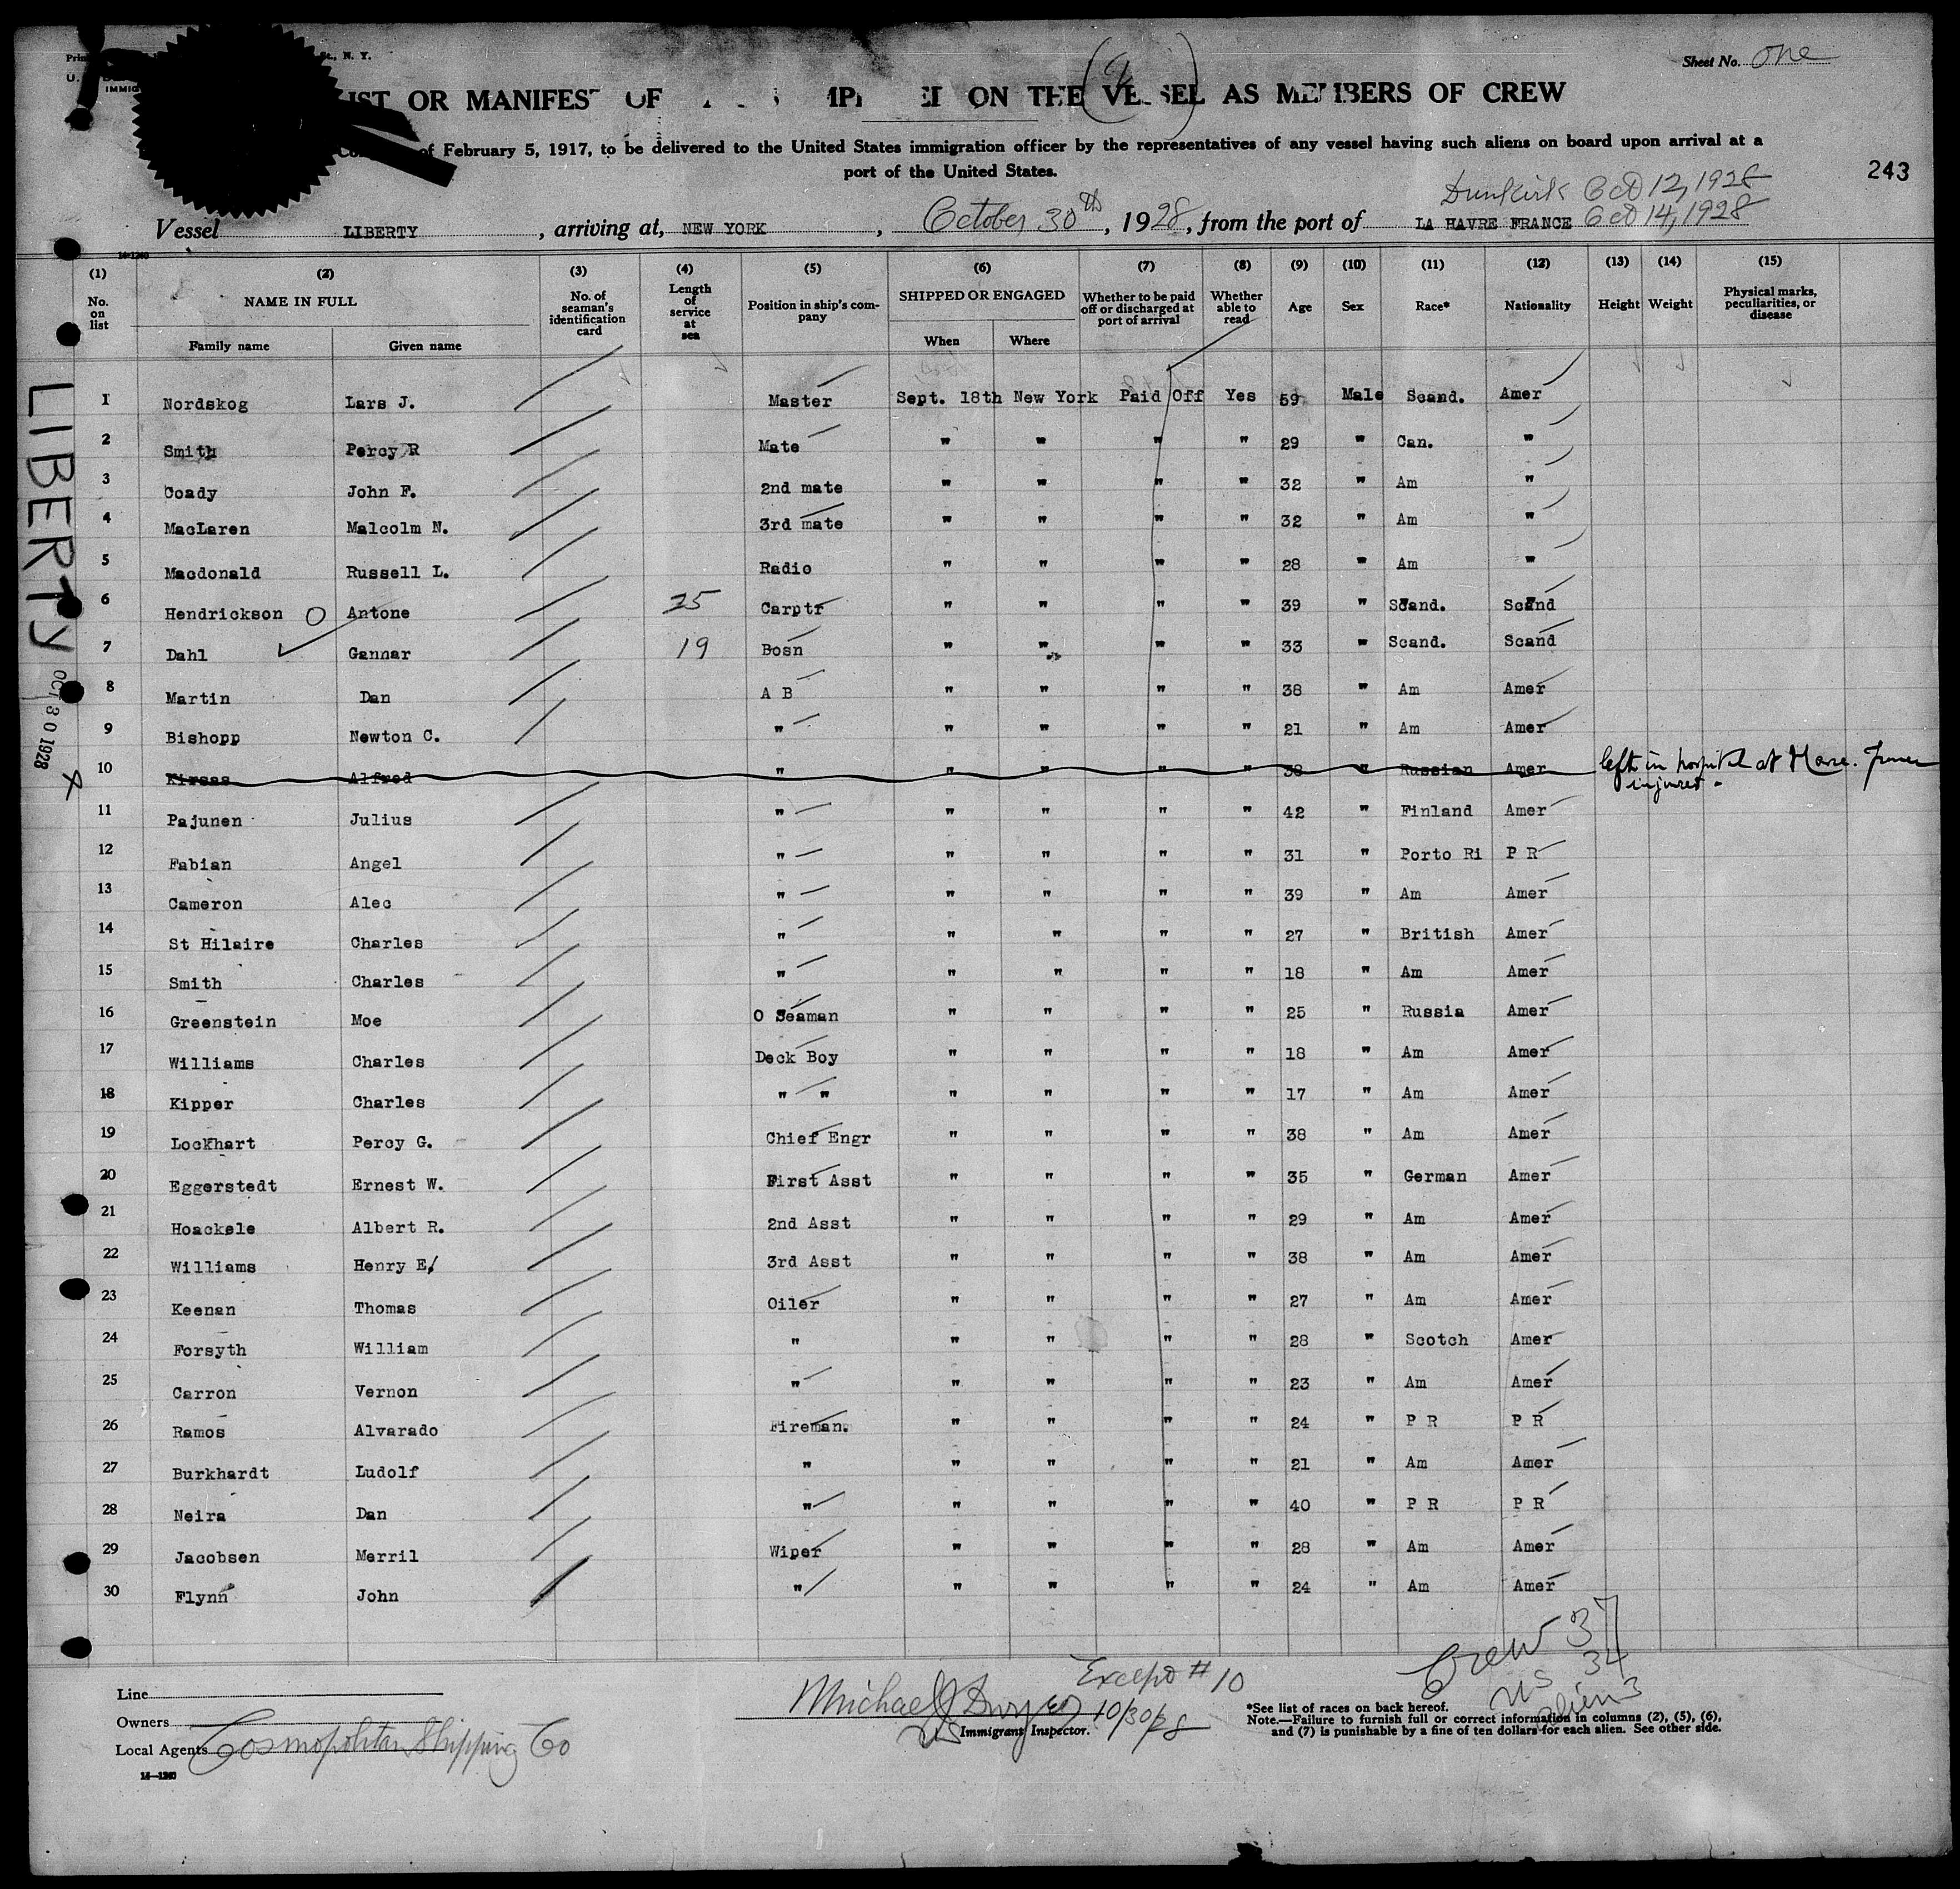 Sheet No. One
LIST OR MANIFEST OF ON THE VESSEL AS MEMBERS OF CREW
of February 5, 1917, to be delivered to the United States immigration officer by the representatives of any vessel having such aliens on board upon arrival at a
port of the United States.
243
Dunkirk Oct 12, 1928
Vessel LIBERTY, arriving at, NEW YORK, October 30th, 1928, from the port of LA HAVRE FRANCE Oct 14, 1928
14-1240
(1) (2) (3) (4) (5) (6) (7) (8) (9) (10) (11) (12) (13) (14) (15)
No. on list NAME IN FULL No. of seaman's identification card Length of service at sea Position in ship's company SHIPPED OR ENGAGED Whether to be paid off or discharged at port of arrival Whether able to read Age Sex Race* Nationality Height Weight Physical marks, peculiarities, or disease
Family name Given name When Where
1 Nordskog Lars J. Master Sept. 18th New York Paid Off Yes 59 Male Scand. Amer
2 Smith Percy R Mate " " " " 29 " Can. "
3 Coady John F. 2nd mate " " " " 32 " Am "
4 MacLaren Malcolm N. 3rd mate " " " " 32 " Am "
5 Macdonald Russell L. Radio " " " " 28 " Am "
6 Hendrickson O Antone 25 Carptr " " " " 39 " Scand. Scand
7 Dahl Gannar 19 Bosn " " " " 33 " Scand. Scand
8 Martin Dan A B " " " " 38 " Am Amer
9 Bishopp Newton C. " " " " " 21 " Am Amer
10 Alfred " " " " " 38 " Russian Amer left in hospital at Havre. France
injured.
11 Pajunen Julius " " " " " 42 " Finland Amer
12 Fabian Angel " " " " " 31 " Porto Ri P R
13 Cameron Alec " " " " " 39 " Am Amer
14 St Hilaire Charles " " " " " 27 " British Amer
15 Smith Charles " " " " " 18 " Am Amer
16 Greenstein Moe O Seaman " " " " 25 " Russia Amer
17 Williams Charles Deck Boy " " " " 18 " Am Amer
18 Kipper Charles " " " " " " 17 " Am Amer
19 Lockhart Percy G. Chief Engr " " " " 38 " Am Amer
20 Eggerstedt Ernest W. First Asst " " " " 35 " German Amer
21 Hoackele Albert R. 2nd Asst " " " " 29 " Am Amer
22 Williams Henry E. 3rd Asst " " " " 38 " Am Amer
23 Keenan Thomas Oiler " " " " 27 " Am Amer
24 Forsyth William " " " " " 28 " Scotch Amer
25 Carron Vernon " " " " " 23 " Am Amer
26 Ramos Alvarado Fireman. " " " " 24 " P R P R
27 Burkhardt Ludolf " " " " " 21 " Am Amer
28 Neira Dan " " " " " 40 " P R P R
29 Jacobsen Merril Wiper " " " " 28 " Am Amer
30 Flynn John " " " " " 24 " Am Amer
LIBERTY
OCT 30 1928
Crew 37
US 34
aliens 3
Except #10
Line
Owners
Local Agents Cosmopolitan Shipping Co
14-1240
Michael J Dwyer 10/30/28
US Immigrant Inspector.
*See list of races on back hereof.
Note.—Failure to furnish full or correct information in columns (2), (5), (6),
and (7) is punishable by a fine of ten dollars for each alien. See other side.